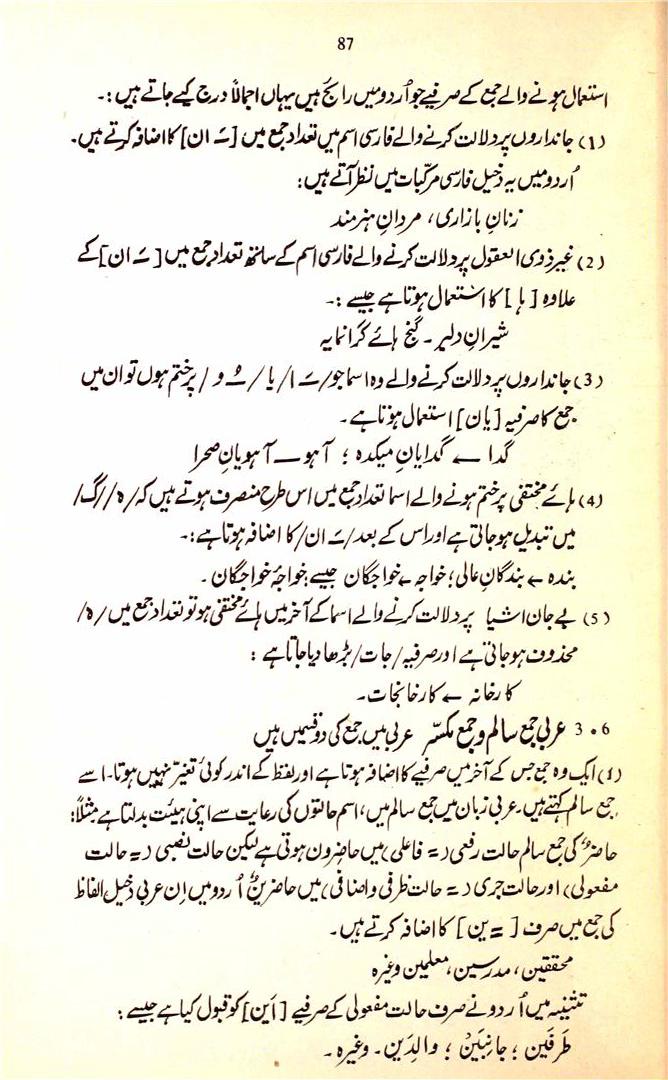 87
استعمال ہونے والے جمع کے صرفیے جو اُردو میں رائج ہیں یہاں اجمالاً درج کیے جاتے ہیں :۔
(1) جانداروں پر دلالت کرنے والے فارسی اسم میں تعداد جمع میں [ ــَـ ان] کا اضافہ کرتے ہیں۔
اُردو میں یہ دخیل فارسی مرکّبات میں نظر آتے ہیں:
زنانِ بازاری، مردانِ ہنرمند
(2) غیر ذوی العقول پر دلالت کرنے والے فارسی اسم کے ساتھ تعداد جمع میں [ ــَـ ان] کے
علاوہ [ ہا ] کا استعمال ہوتا ہے جیسے :۔
شیرانِ دلیر ۔ گنج ہائے گرانمایہ
(3) جانداروں پر دلالت کرنے والے وہ اسما جو / ــَـ ا/ یا / ــُـ و / پر ختم ہوں تو ان میں
جمع کا صرفیہ [یان] استعمال ہوتا ہے۔
گدا ← گدایانِ میکدہ ؛ آہو ــ آہویانِ صحرا
(4) ہائے مختفی پر ختم ہونے والے اسما تعداد جمع میں اس طرح منصرف ہوتے ہیں کہ / ہ / /گ/
میں تبدیل ہو جاتی ہے اور اس کے بعد / ــَـ ان/ کا اضافہ ہوتا ہے :۔
بندہ ← بندگانِ عالی؛ خواجہ ← خواجگان جیسے: خواجۂ خواجگان ۔
(5) بے جان اشیا پر دلالت کرنے والے اسما کے آخر میں ہائے مختفی ہو تو تعداد جمع میں / ہ /
محذوف ہو جاتی ہے اور صرفیہ / جات/ بڑھا دیا جاتا ہے :
کارخانہ ← کارخانجات۔
3 ۰ 6 عربی جمع سالم و جمع مکسّر عربی میں جمع کی دو قسمیں ہیں
(1) ایک وہ جمع جس کے آخر میں صرفیے کا اضافہ ہوتا ہے اور لفظ کے اندر کوئی تغیّر نہیں ہوتا۔ اسے
جمع سالم کہتے ہیں۔ عربی زبان میں جمع سالم میں، اسم حالتوں کی رعایت سے اپنی ہیئت بدلتا ہے مثلاً:
حاضرٌ کی جمع سالم حالت رفعی (= فاعلی) میں حاضرون ہوتی ہے لیکن حالت نصبی (= حالت
مفعولی) اور حالت جری (= حالت ظرفی و اضافی) میں حاضرین۔ اُردو میں اِن عربی دخیل الفاظ
کی جمع میں صرف [ ــِـ ین] کا اضافہ کرتے ہیں۔
محققین، مدرسین، معلمین وغیرہ
تثنیہ میں اُردو نے صرف حالت مفعولی کے صرفیے [اَین] کو قبول کیا ہے جیسے :
طَرفَین ؛ جانِبَیْن ؛ والِدَین۔ وغیرہ ۔